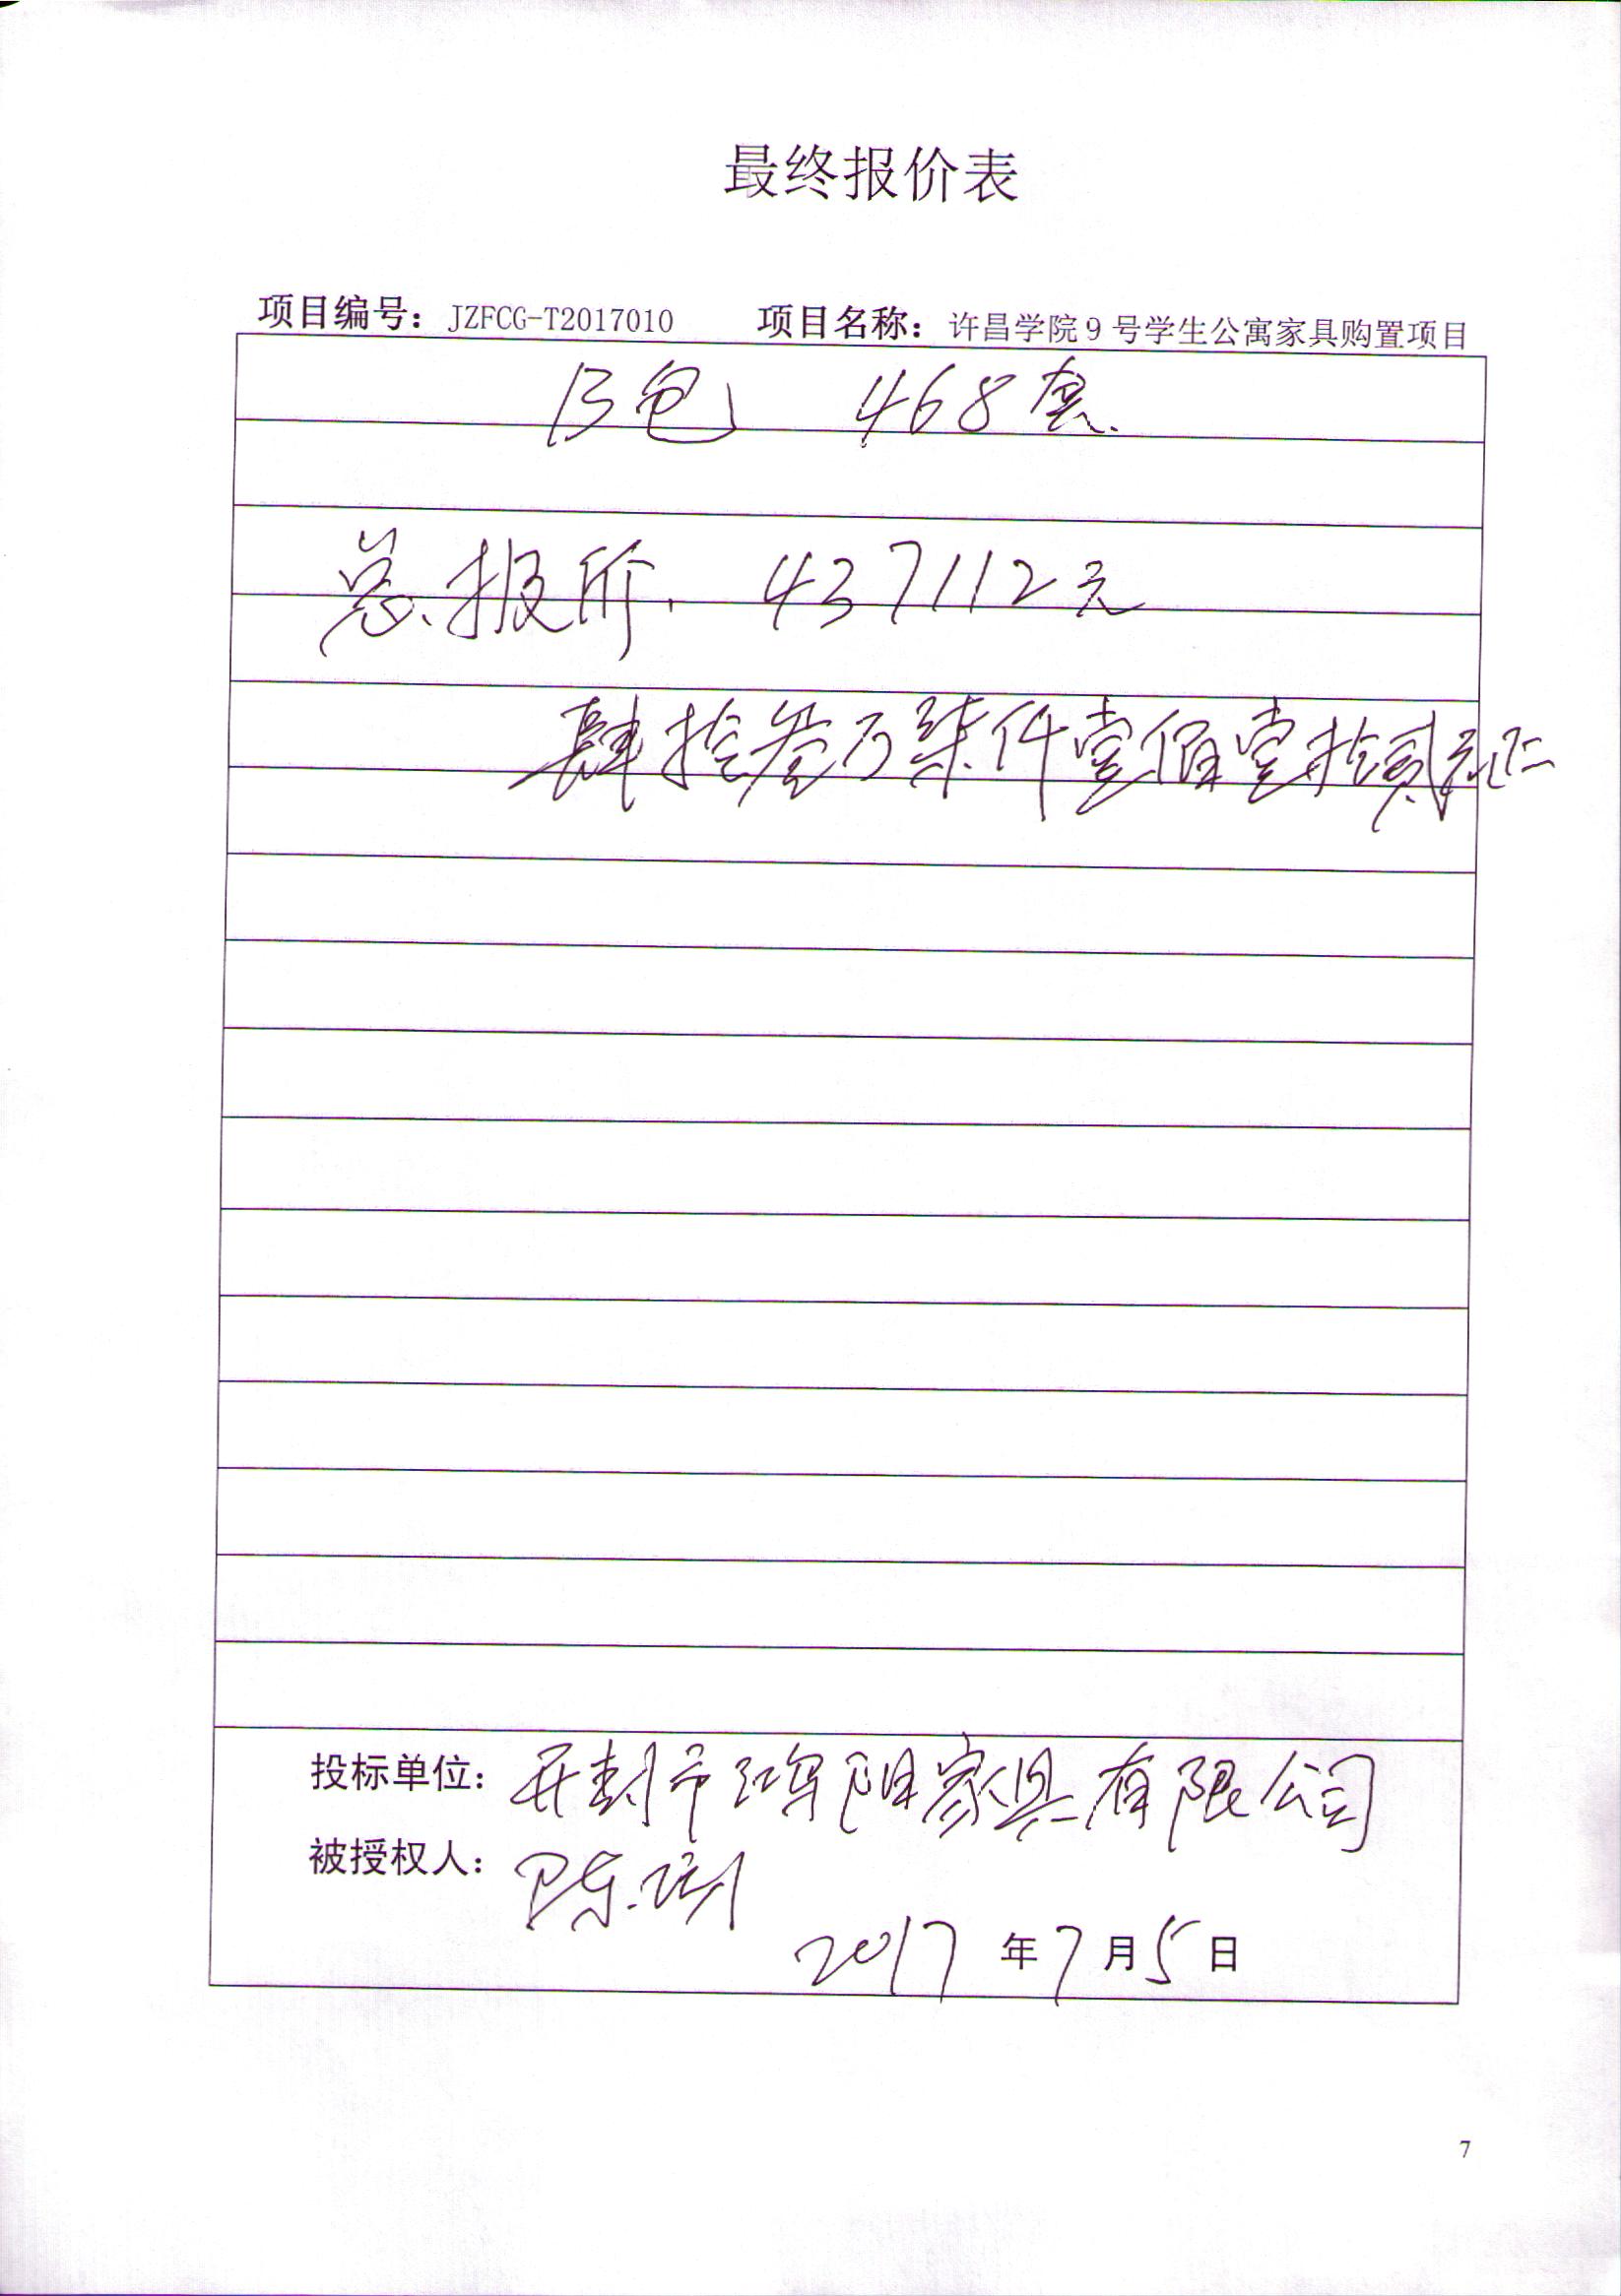 最终报价表
项目编号：JZFCG-T2017010 项目名称：许昌学院9号学生公寓家具购置项目
B包 468套
总报价. 437112元
肆拾叁万柒仟壹佰壹拾贰元正
投标单位：开封市鸿阳家具有限公司
被授权人：陈
2017年7月5日
7